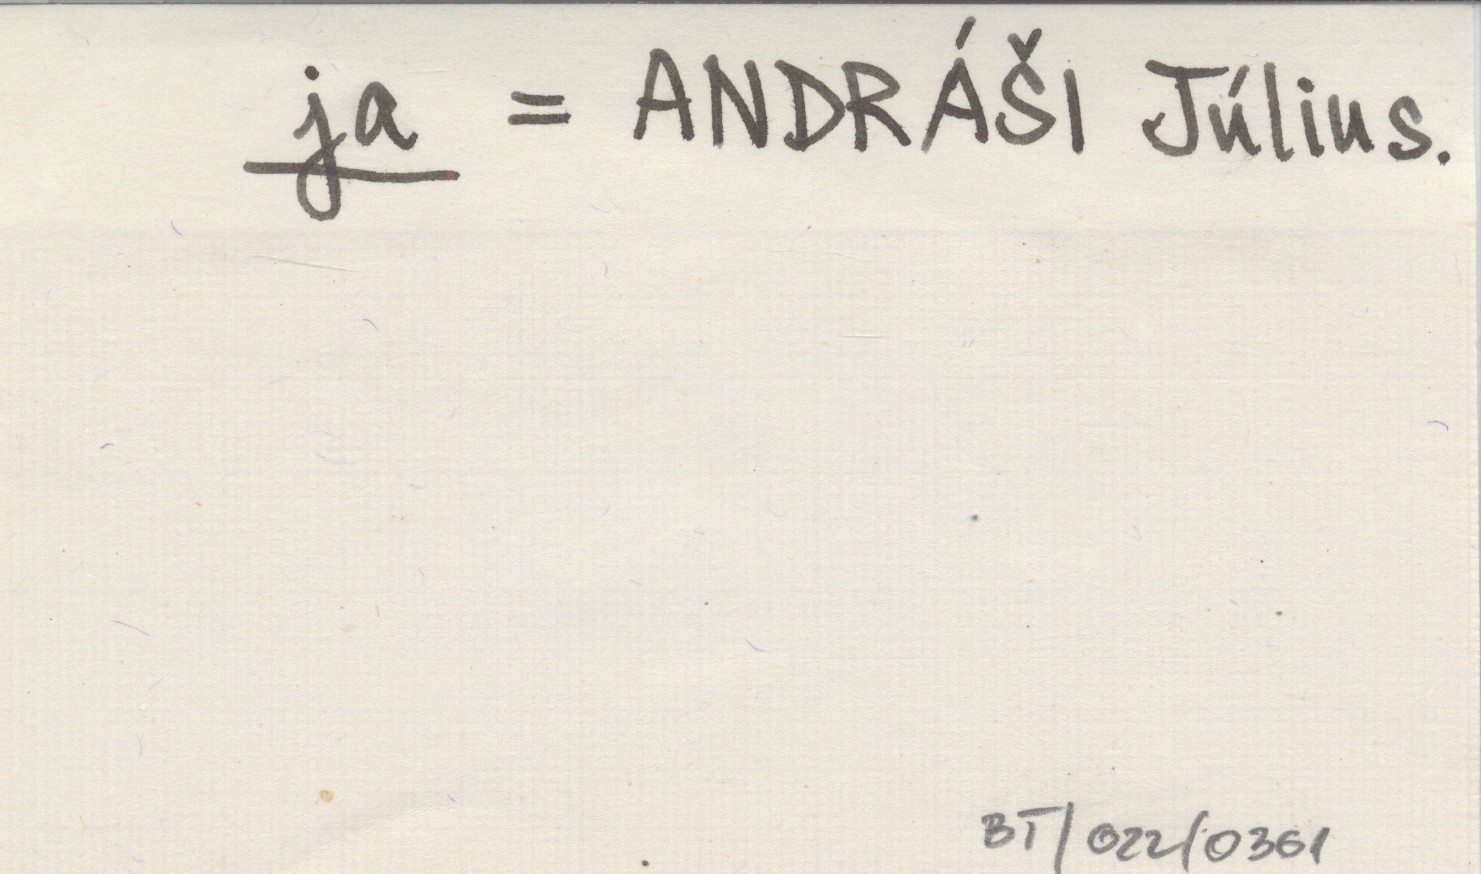 ja = ANDRÁŠI Július.
BT/022/0361